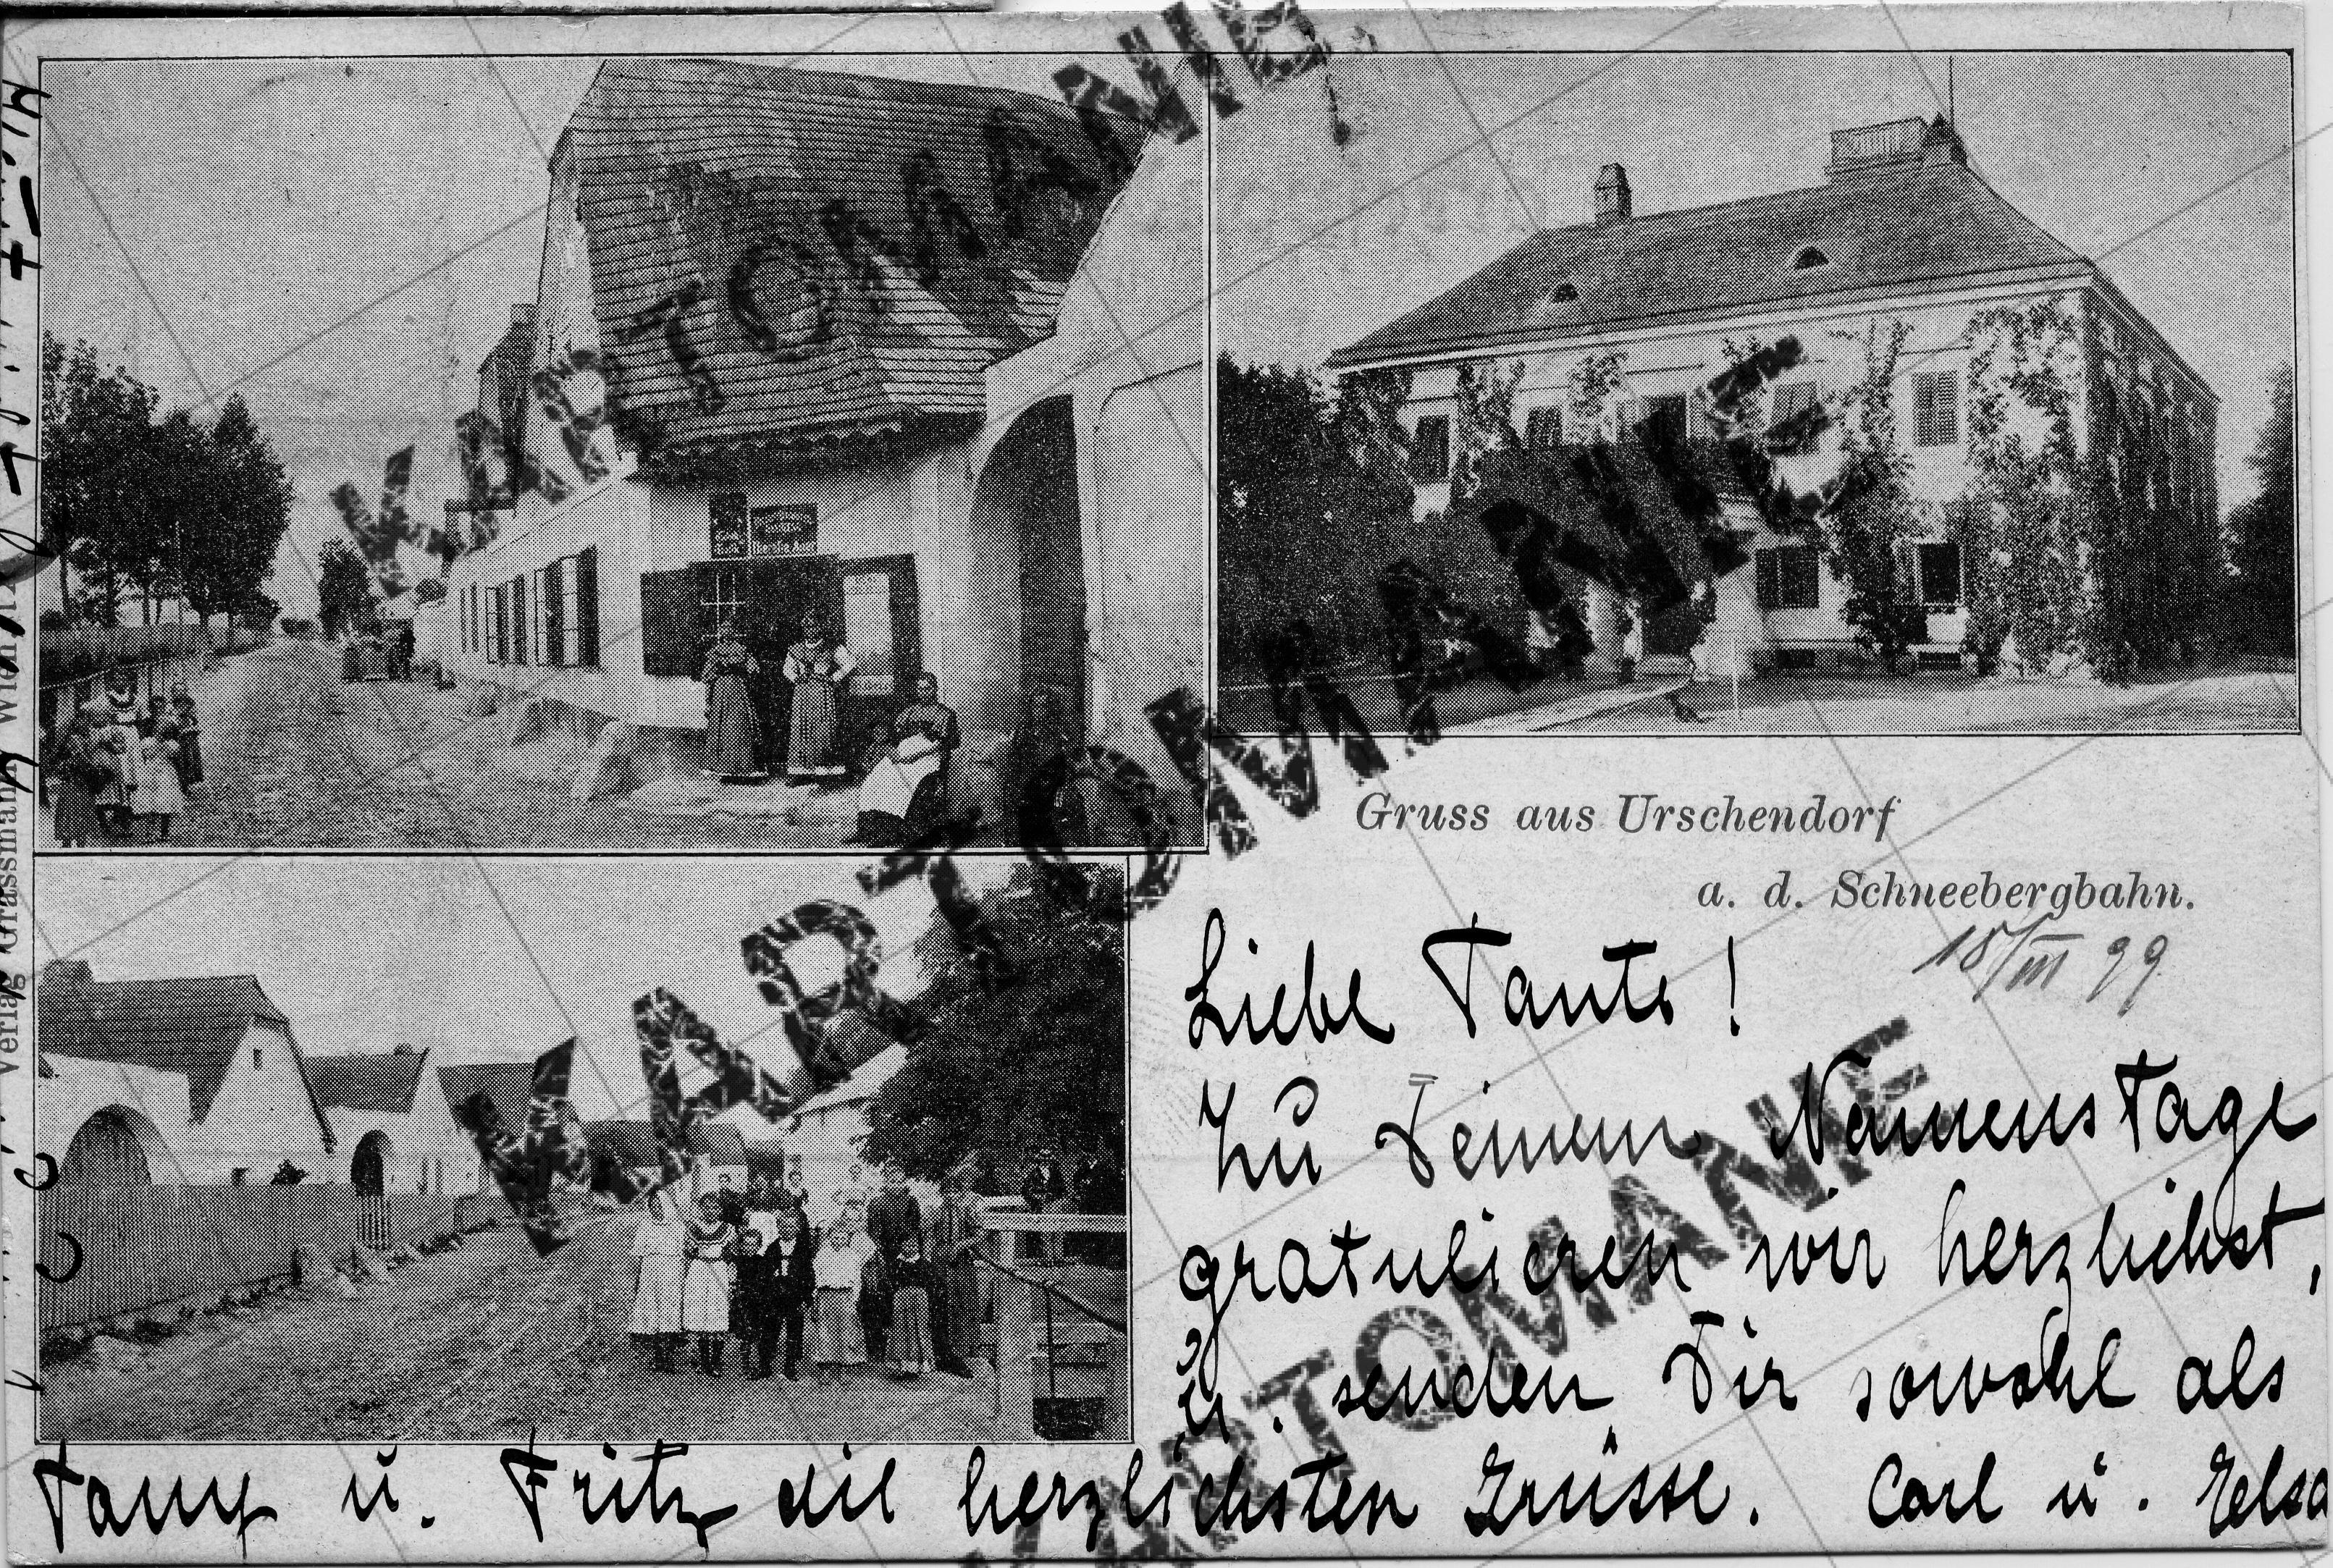 Gruss aus Urschendorf
a. d. Schneebergbahn.
18/III 99
Liebe Tante!
Zu Deinem Namenstage
gratulieren wir herzlichst,
u. senden Dir sowohl als
u. Fritz die herzlichsten Grüsse. Carl u.
Verlag Grassmann Wien
KARTOMANIE
KARTOMANIE
KARTOMANIE